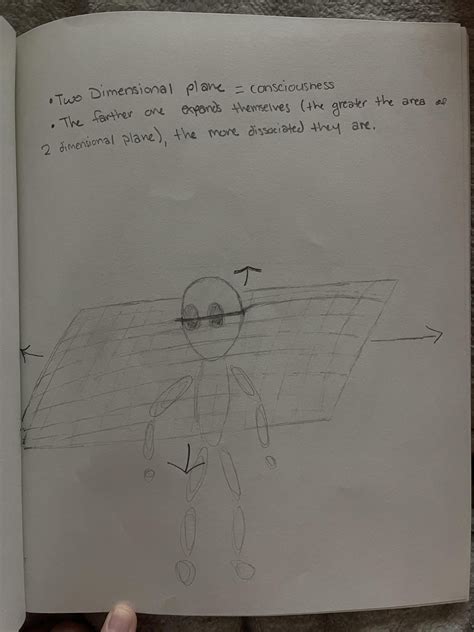 • Two Dimensional plane = consciousness
• The farther one expands themselves (the greater the area of
2 dimensional plane), the more dissociated they are.